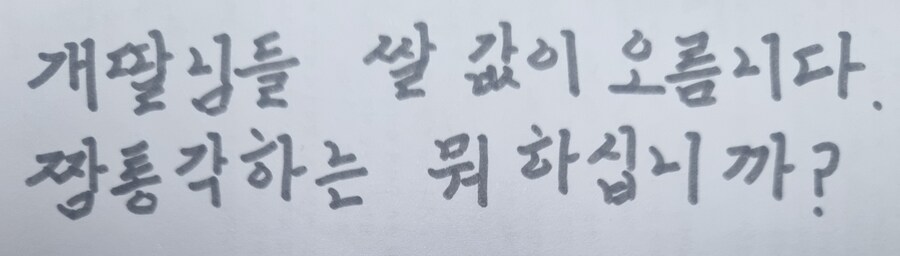 개딸님들 쌀 값이 오름니다.
짬통각하는 뭐 하십니까?